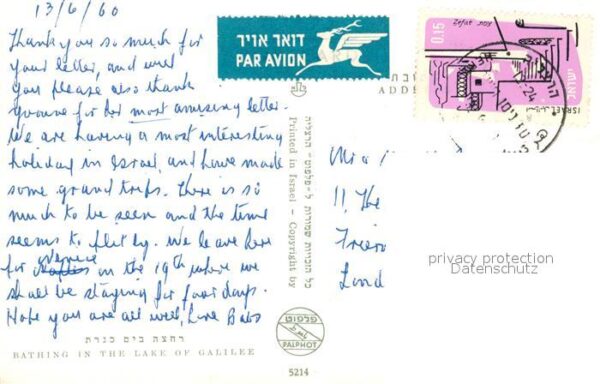 13/6/60
Thank you so much for
your letter, and will
you please also thank
Yvonne for her most amusing letter.
We are having a most interesting
holiday in Israel, and have made
some grand trips. There is so
much to be seen and the time
seems to flit by. We leave here
for Venice on the 19th where we
shall be staying for four days.
Hope you are all well, Love Babs
רחצה בים כנרת
BATHING IN THE LAKE OF GALILEE
דואר אויר
PAR AVION
כל הזכויות שמורות ל״פלפוט״ הרצליה
Printed in Israel - Copyright by
פלפוט
PALPHOT
5214
ADDRE
0.15
ISRAEL
11, The
Lond
privacy protection
Datenschutz